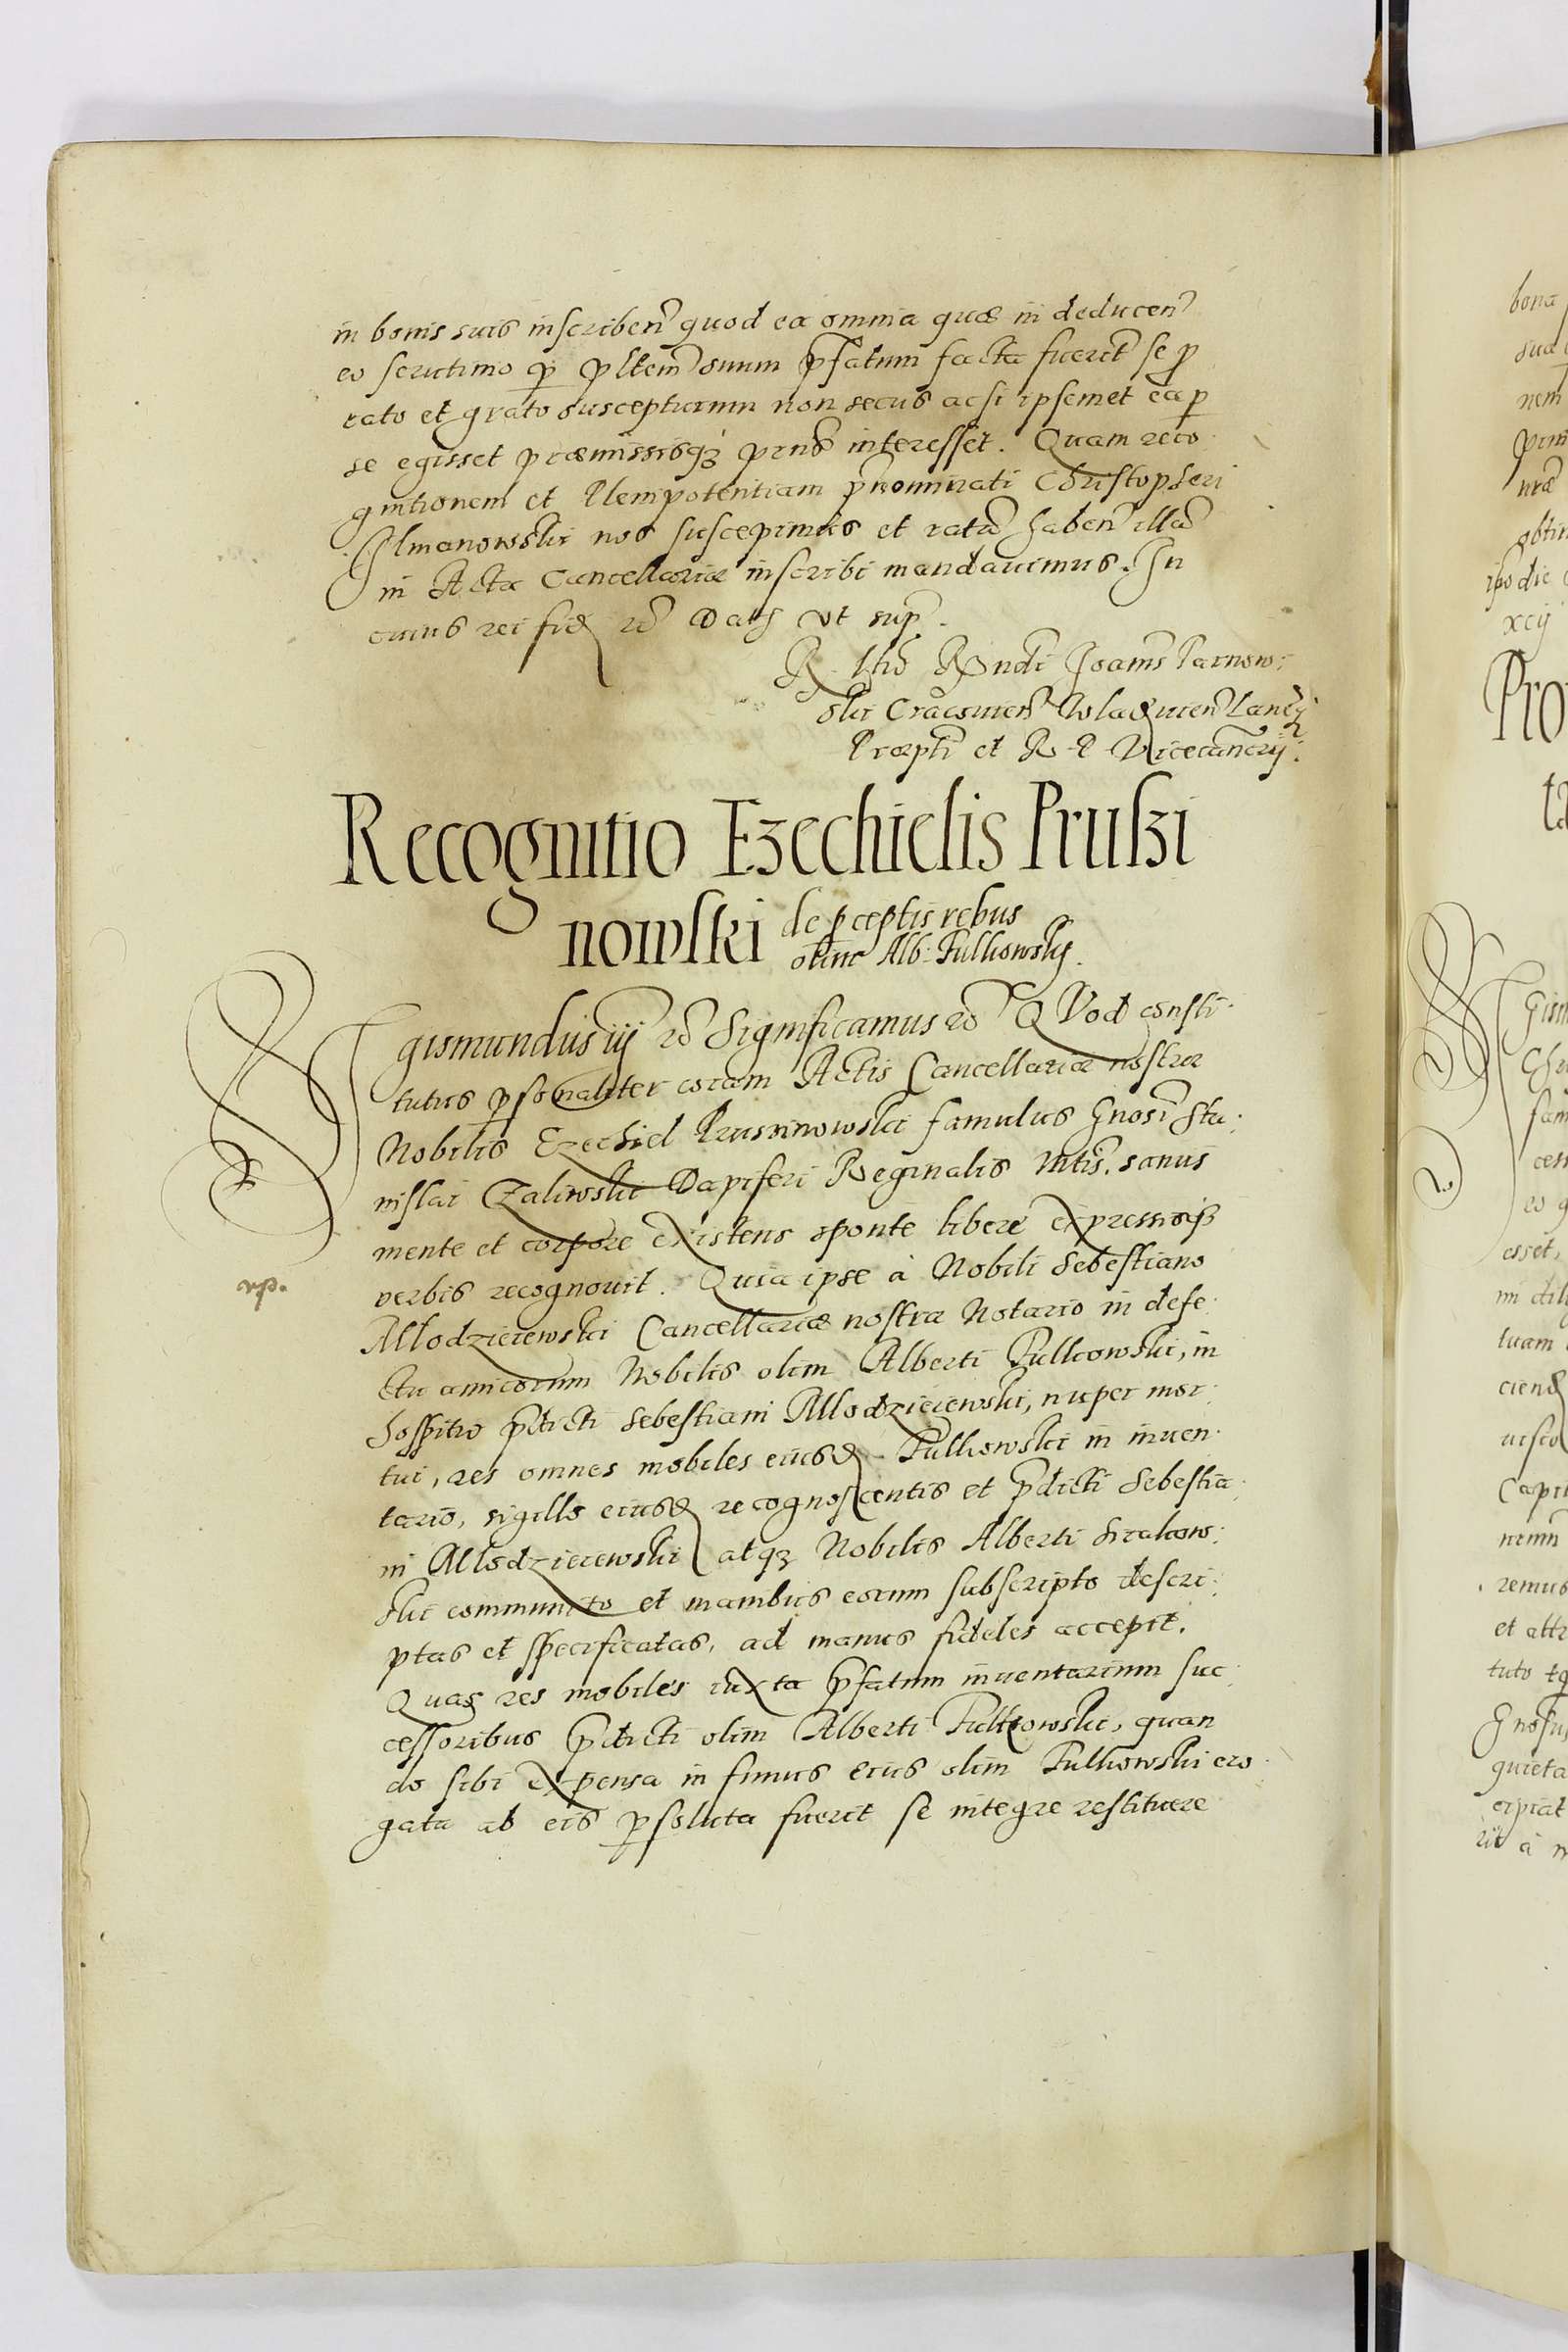 in bonis suis inscriben̄ quod ea omnia quæ in deducen̄
eo scrutinio p̱ pltem̄ suum p̄fatum facta fuerit̄ se p̱
rato et grato suscepturum non secus ac si ipsemet ea p̱
se egisset præmissisq₃ pr̄ns interesset. Quam reco
gnitionem et Plenipotentiam p̄nominati Christopheri
Ilmanowski nos suscepimus et ratā haben̄ illā
in Acta Cancellariæ inscribi mandauimus. In
cuius rei fid
Dat ut sup̄.
R Rūndi Joannis Tarnow:
ski Cracouien̄ Wladislauien̄ Lancy
Præpti et R. P. Vicecancrij.
Recognitio Ezechielis Pruszi
nowski de p̱ceptis rebus
olim Alb: Pulkowskj.
Sigismundus iij Significamus QVod consti:
tutus p̱sonaliter coram Actis Cancellariæ nostræ
Nobilis Ezechiel Prusinowski famulus Gnosi Sta:
nislai Zaliwski Dapiferi Reginalis Mtis. sanus
mente et corpore existens sponte libere expressisq₃
verbis recognouit. Quia ipse à Nobili Sebestiano
Mlodzieiewski Cancellariæ nostræ Notario in defe:
ctu amicorum Nobilis olim Alberti Pulkowski, in
hospitio p̄dicti Sebestiani Mlodzieiewski, nuper mor:
tui, res omnes mobiles eiusd Pulkowski in inuen:
tario, sigillo eiusd recognoscentis et p̄dicti Sebestia:
ni Mlodzieiewski atq₃ Nobilis Alberti Sirakow:
ski communito et manibus eorum subscripto descri:
ptas et specificatas, ad manus fideles accepit.
Quas res mobiles iuxta p̄fatum inuentarium suc:
cessoribus p̄dicti olim Alberti Pulkowski, quan
do sibi expensa in funus eius olim Pulkowski ero:
gata ab eis p̱soluta fuerit se integre restituere
rp.